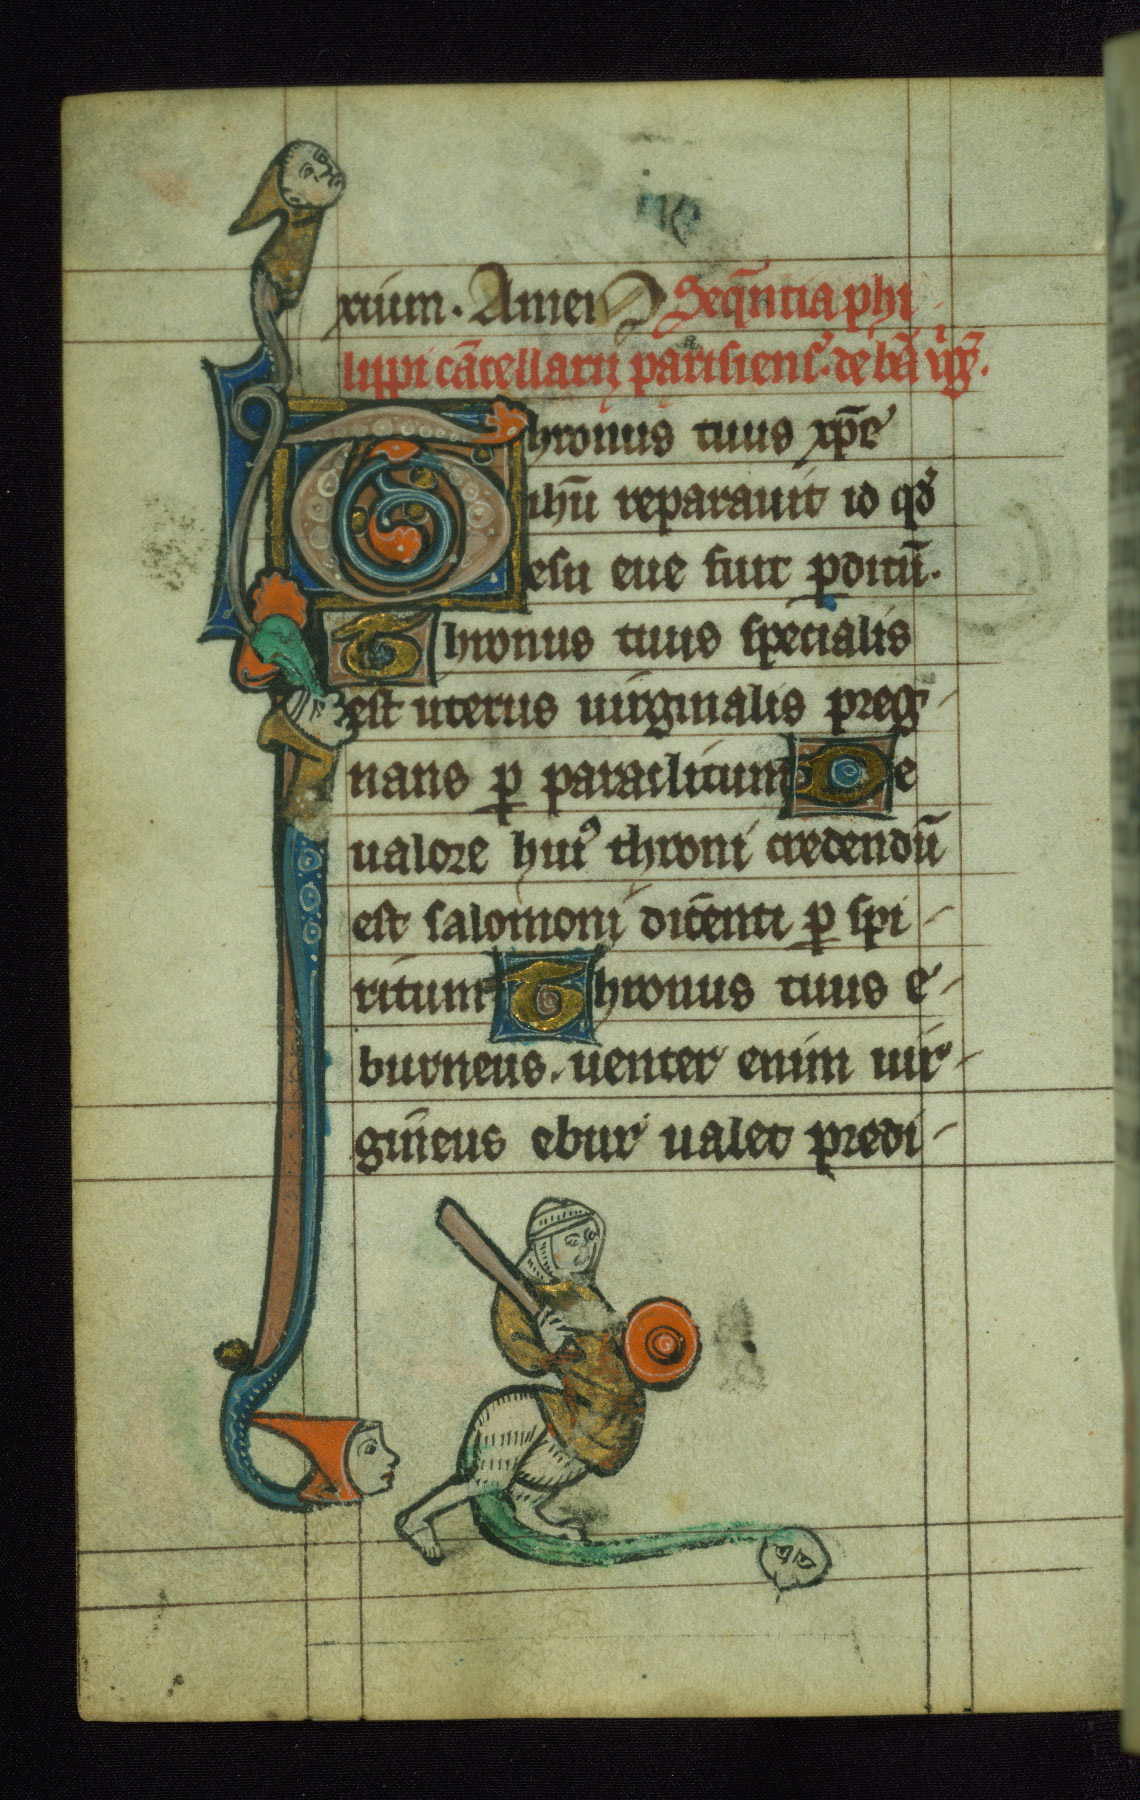 xium. Amen Seq̄ntia phi
lippi cācellarij parisiens̾. de bā ůg̾.
Thronus tuus xp̄e
ihū reparauit id qď
esu eue fuit ꝑditū.
Thronus tuus specialis
est uterus uirginalis preg-
nans ꝑ paraclitum De
ualore huiꝰ throni credendū
est salomoni dicēnti ꝑ spi-
ritum Thronus tuus e-
burneus. uenter enim uir-
gin̄eus ebur ualet predi-